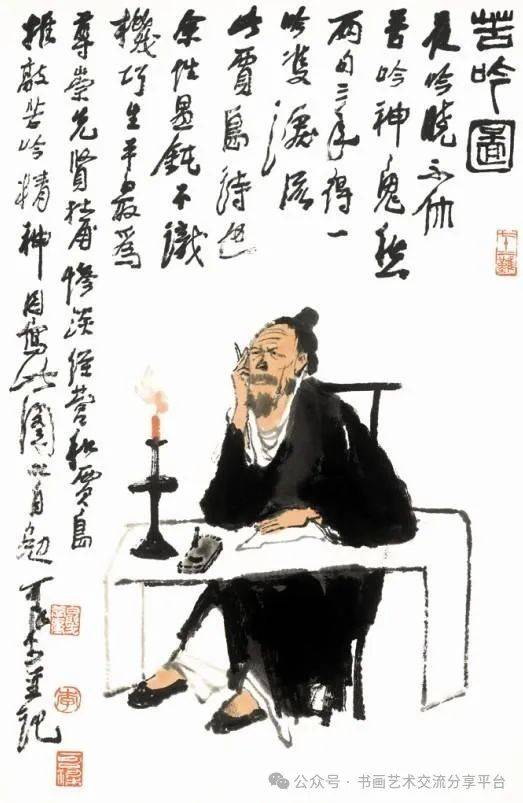 苦吟圖
夜吟曉不休
苦吟神鬼愁
兩句三年得一
吟雙淚流
此賈島詩也
余性愚鈍不識
機巧生平最為
尊崇先賢杜甫慘淡經營和賈島
推敲苦吟精神因寫此圖以自勉 可染並記
李
公众号 · 书画艺术交流分享平台